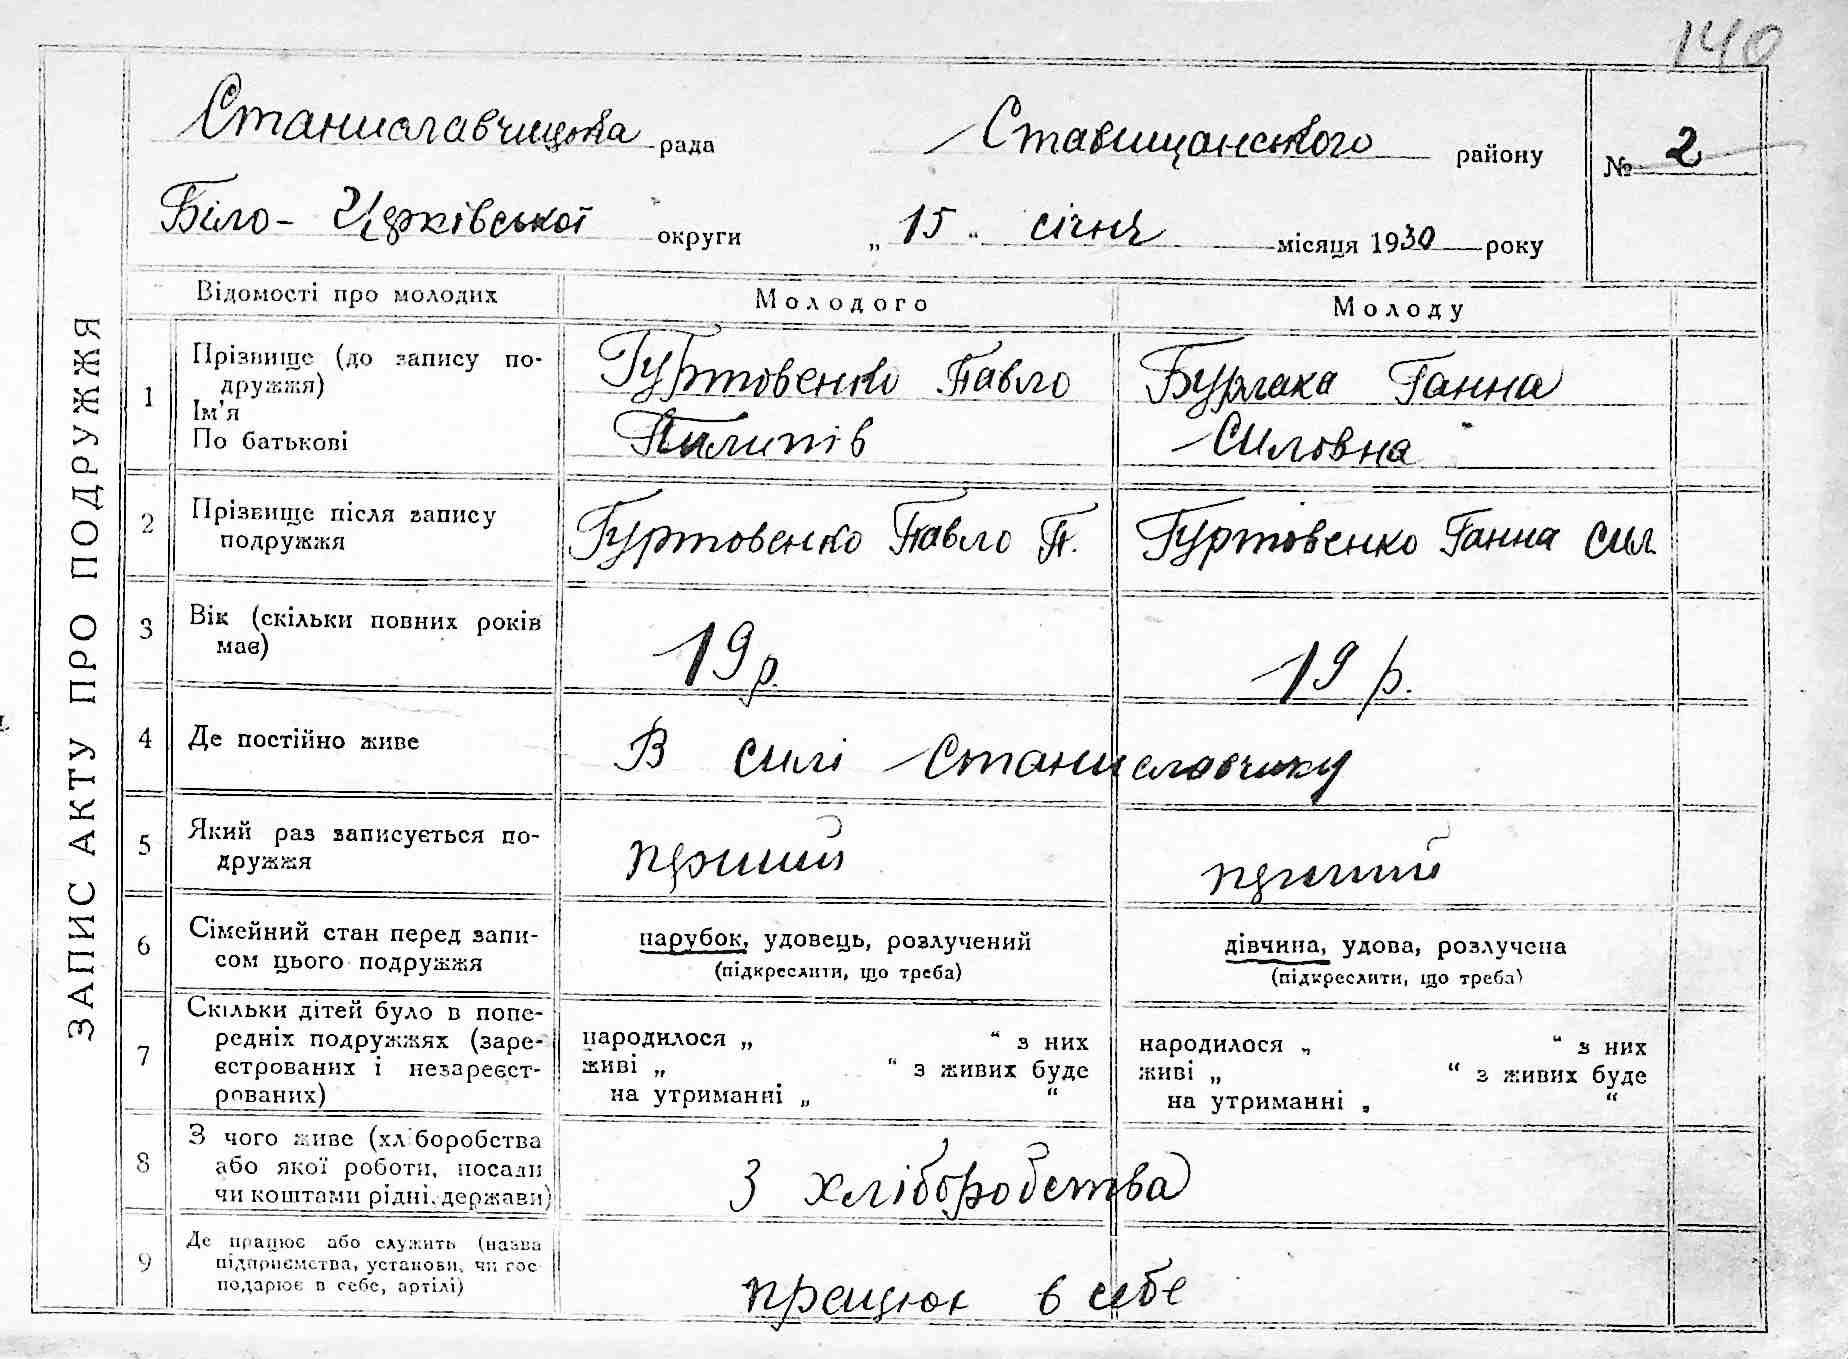 140
Станиславчицька рада Ставищанського району № 2
Біло-Церківської округи „ 15 “ січня місяця 1930 року
ЗАПИС АКТУ ПРО ПОДРУЖЖЯ
Відомості про молодих Молодого Молоду
1 Прізвище (до запису по-
дружжя)
Ім'я
По батькові
Гуртовенко Павло
Пилипів
Бурлака Ганна
Силовна
2 Прізвище після запису
подружжя
Гуртовенко Павло П.
Гуртовенко Ганна Сил
3 Вік (скільки повних років
має)
19 р.
19 р.
4 Де постійно живе
В силі Станиславчику
5 Який раз записується по-
дружжя
перший
перший
6 Сімейний стан перед запи-
сом цього подружжя
парубок, удовець, розлучений
(підкреслити, що треба)
дівчина, удова, розлучена
(підкреслити, що треба)
7 Скільки дітей було в попе-
редніх подружжях (заре-
єстрованих і незареєст-
рованих)
народилося „ “ з них
живі „ “ з живих буде
на утриманні „ “
народилося „ “ з них
живі „ “ з живих буде
на утриманні „ “
8 З чого живе (хліборобства
або якої роботи, посади
чи коштами рідні, держави)
З хліборобства
9 Де працює або служить (назва
підприємства, установи, чи гос
подарює в себе, артілі)
працює в себе